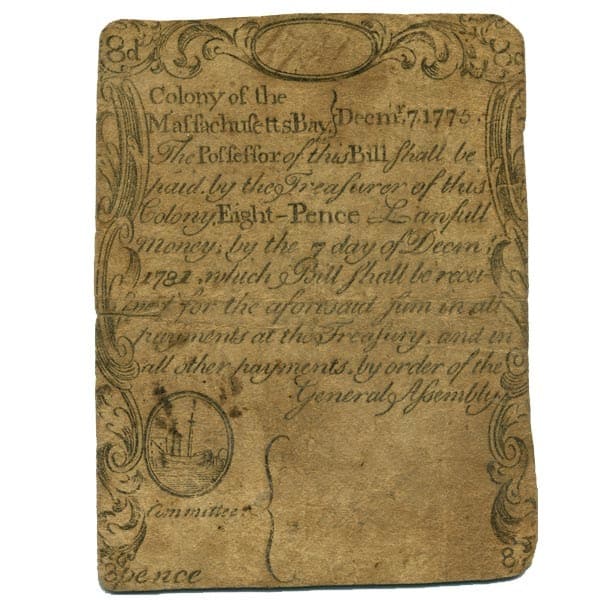 8d 8d
Colony of the
Maſſachuſetts Bay, } Decmr. 7, 1775.
The Poſſeſſor of this Bill ſhall be
paid, by the Treaſurer of this
Colony, Eight-Pence Lawfull
Money, by the 7 day of Decmr.
1781, which Bill ſhall be recei
ved for the aforeſaid ſum in all
payments at the Treaſury, and in
all other payments, by order of the
General Aſſembly,
Committee
8pence 8